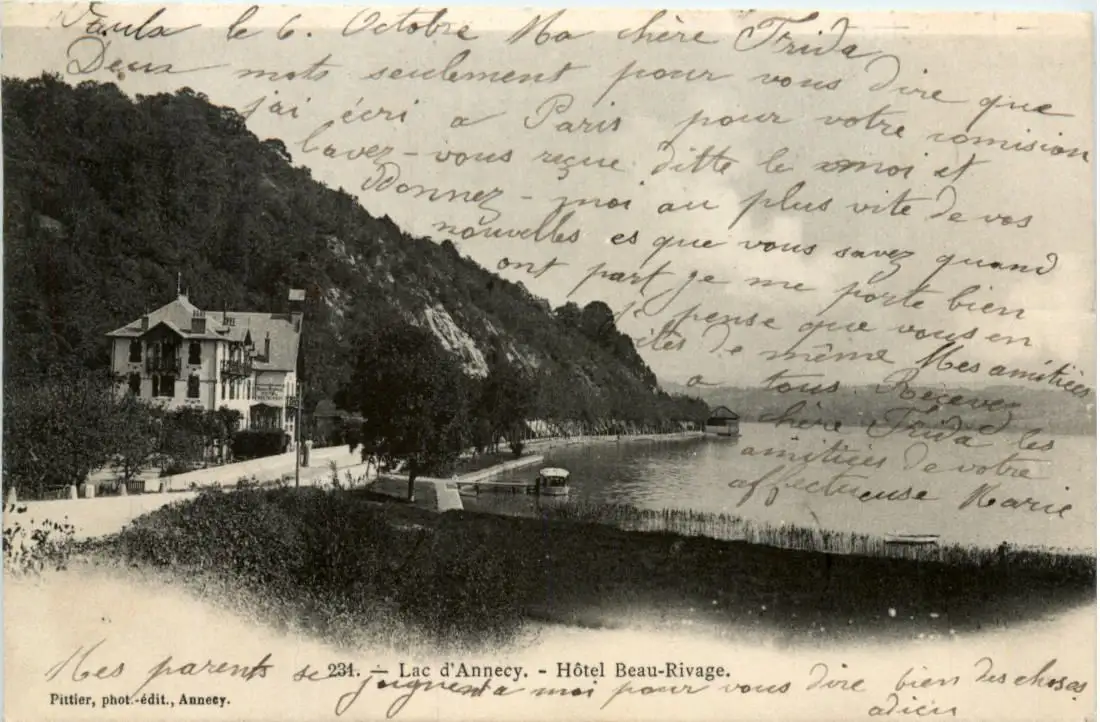 le 6. Octobre Ma chère Frida
Deux mots seulement pour vous dire que
j'ai écri a Paris pour votre comision
l'avez-vous reçue ditte le moi et
Donnez-moi au plus vite de vos
nouvelles es que vous savez quand
ont part je me porte bien
et pense que vous en
ites de même Mes amitiées
a tous. Recevez
chère Frida les
amitiees de votre
affectueuse Marie
HOTEL
Mes parents se joignent a moi pour vous dire bien des choses
adieu
231. - Lac d'Annecy. - Hôtel Beau-Rivage.
Pittier, phot.-édit., Annecy.